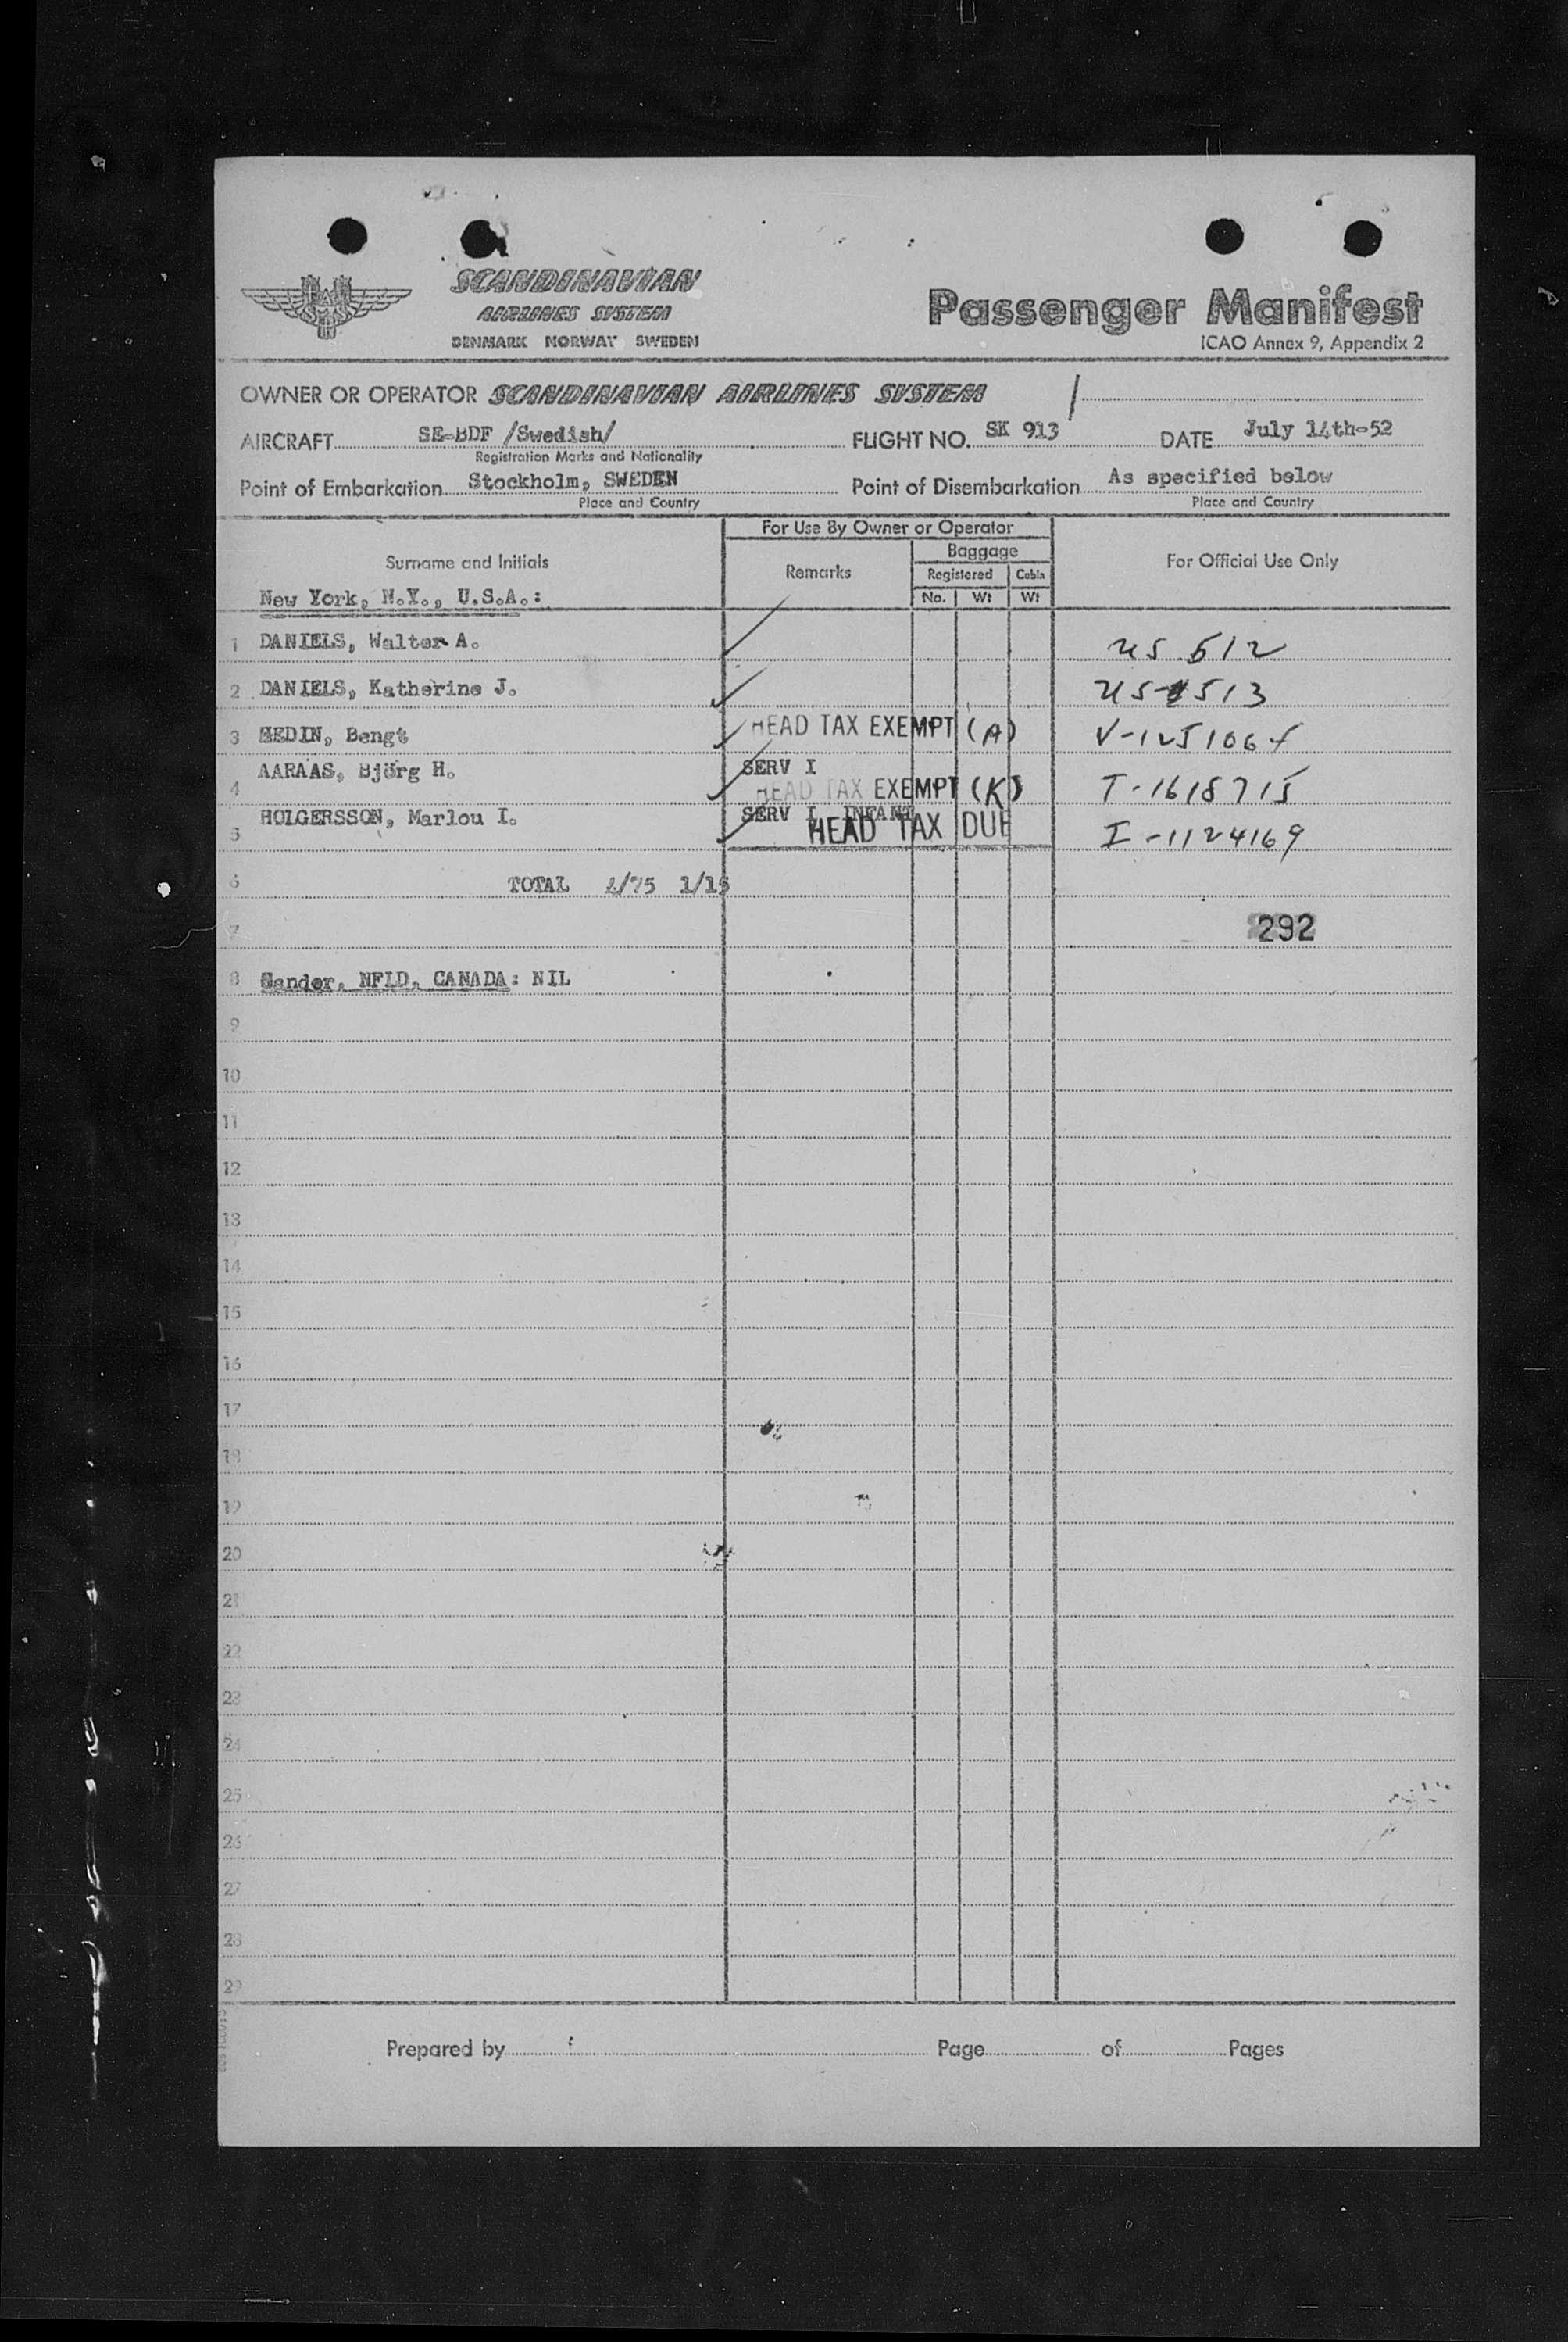 SCANDINAVIAN
AIRLINES SYSTEM
DENMARK NORWAY SWEDEN
Passenger Manifest
ICAO Annex 9, Appendix 2
OWNER OR OPERATOR SCANDINAVIAN AIRLINES SYSTEM
AIRCRAFT SE-BDF /Swedish/ FLIGHT NO. SK 913 DATE July 14th-52
Registration Marks and Nationality
Point of Embarkation Stockholm, SWEDEN Point of Disembarkation As specified below
Place and Country Place and Country
For Use By Owner or Operator
Surname and Initials Remarks Baggage For Official Use Only
Registered Cabin
No. Wt Wt
New York, N.Y., U.S.A.:
1 DANIELS, Walter A. US 512
2 DANIELS, Katherine J. US 513
3 HEDIN, Bengt HEAD TAX EXEMPT (A) V-125106
4 AARAAS, Björg H. SERV I HEAD TAX EXEMPT (K) T-1618715
5 HOLGERSSON, Marlou I. SERV I INFANT HEAD TAX DUE I-1124169
6 TOTAL 4/75 1/15
7 292
8 Gander, NFLD, CANADA: NIL
9
10
11
12
13
14
15
16
17
18
19
20
21
22
23
24
25
26
27
28
29
Prepared by Page of Pages